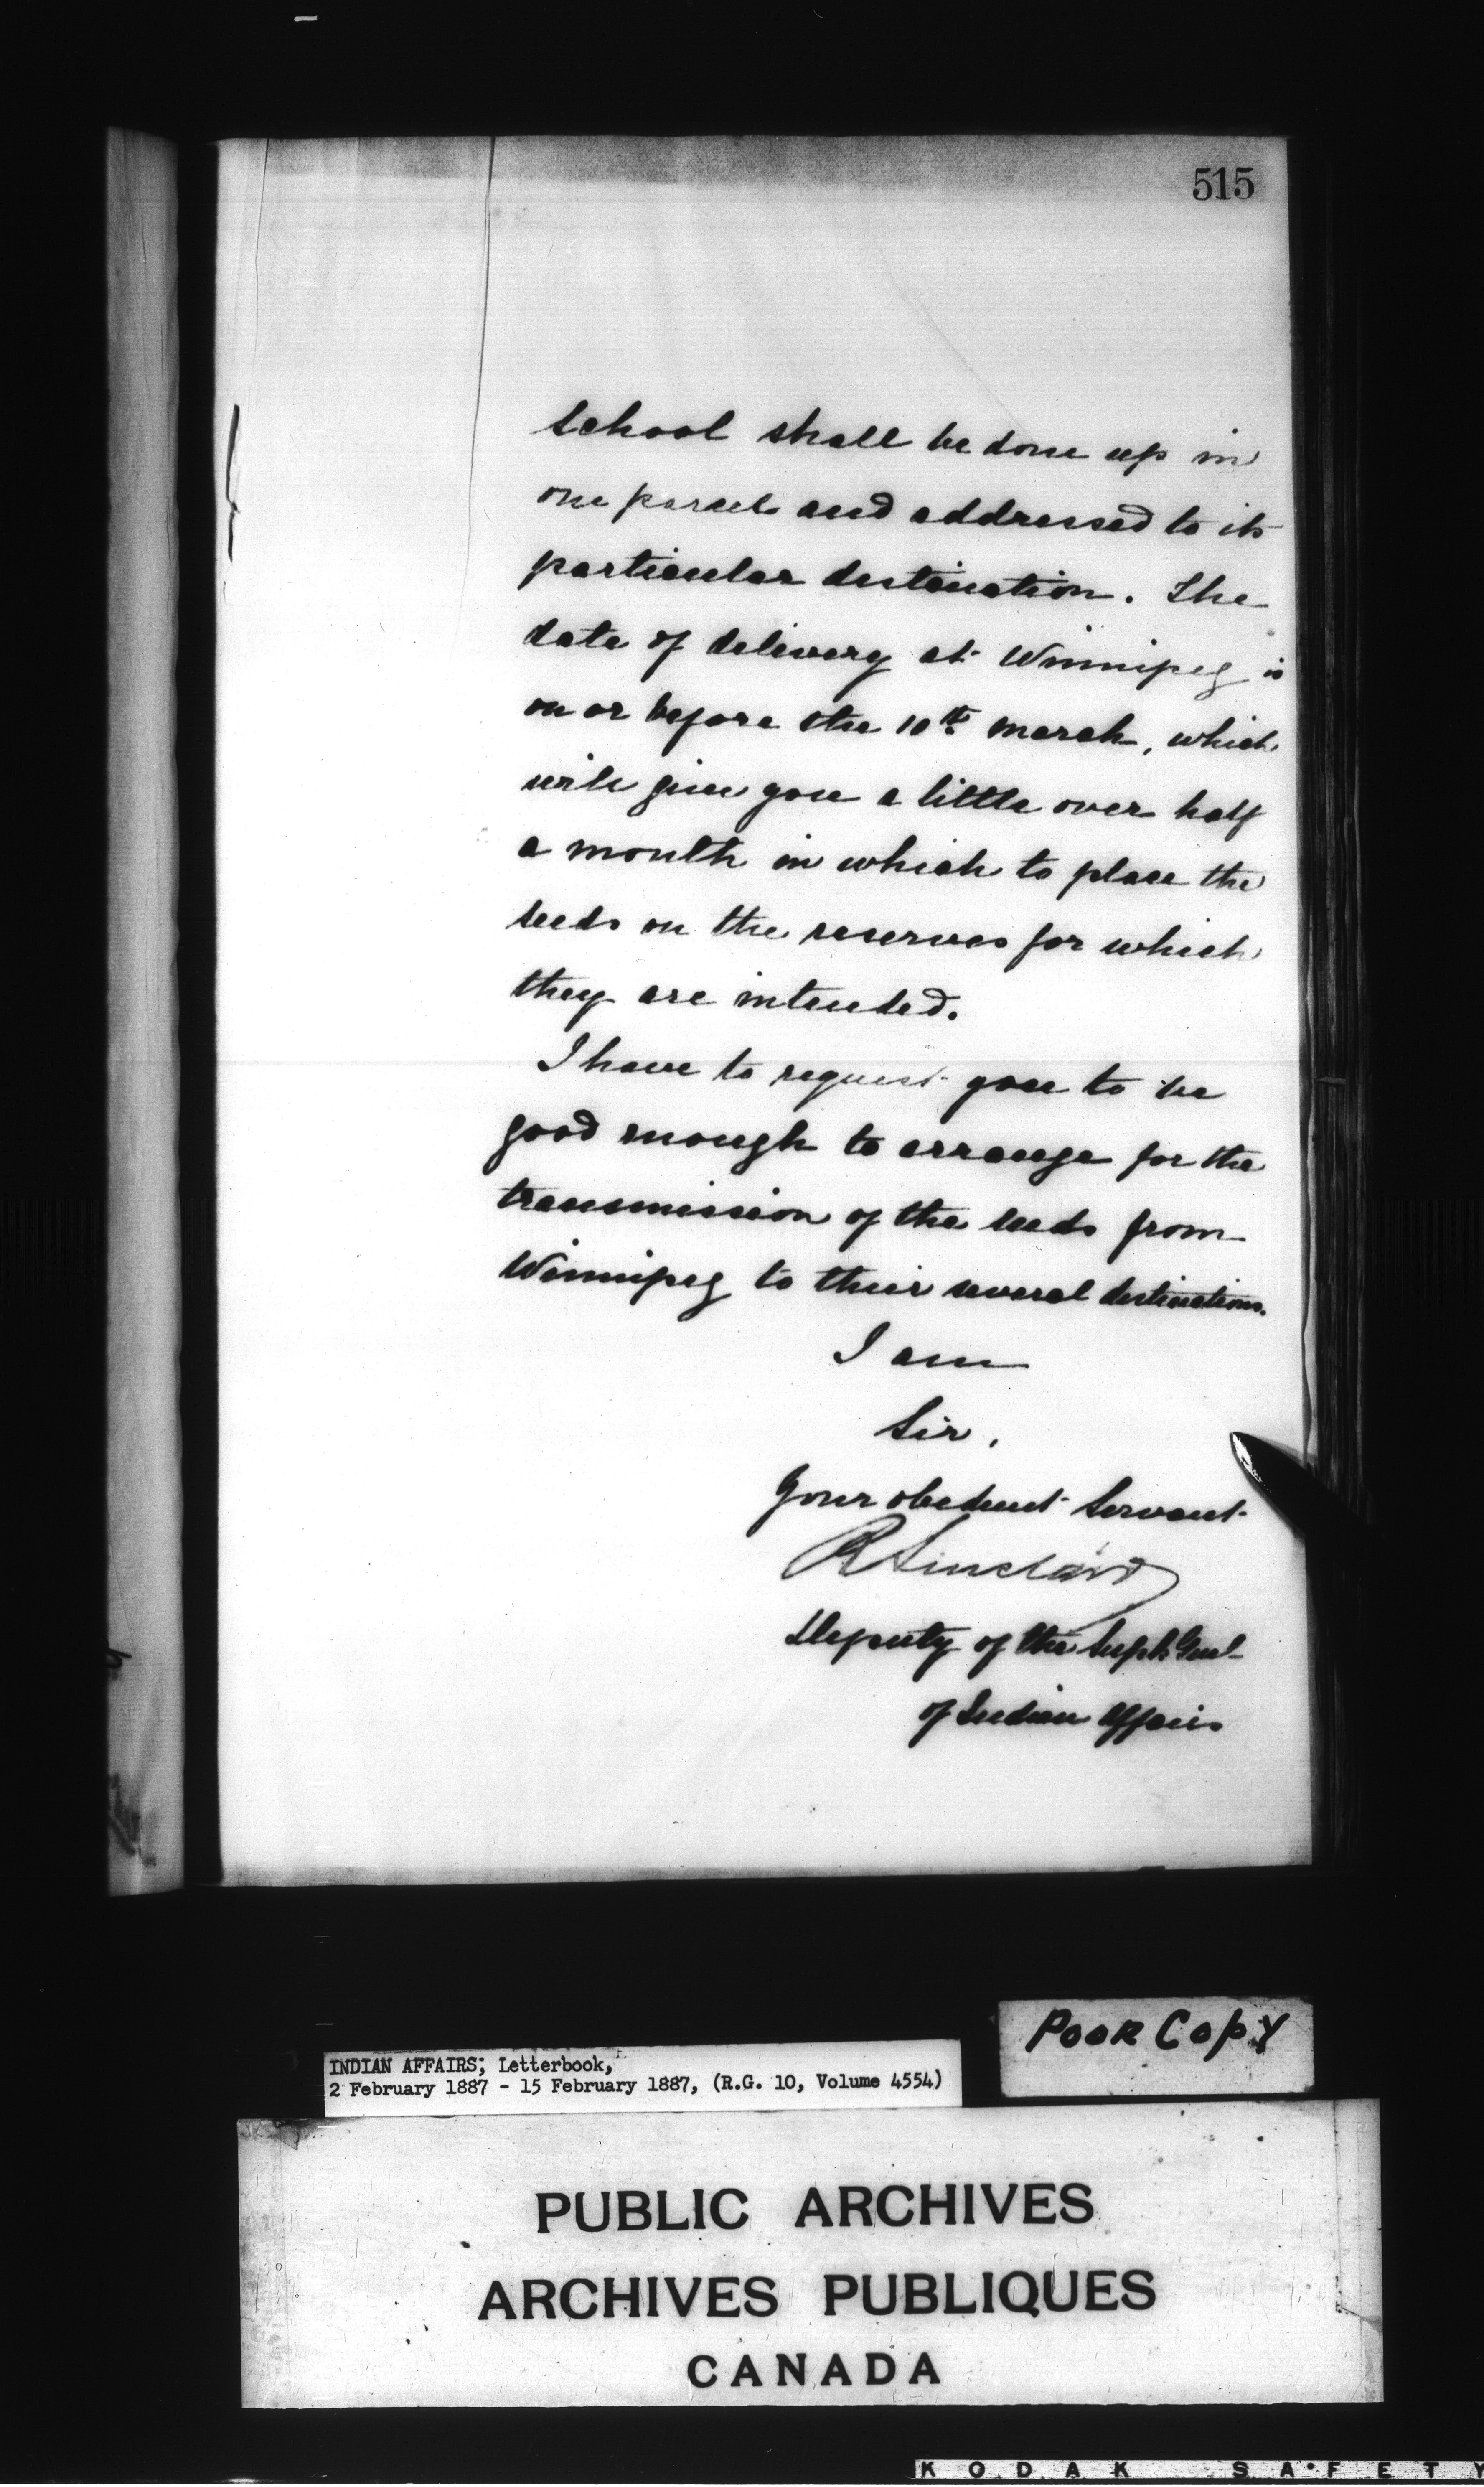 515
School shall be done up in
one parcel and addressed to its
particular destination. The
date of delivery at Winnipeg is
on or before the 10th March, which
will give you a little over half
a month in which to place the
seeds on the reserves for which
they are intended.
I have to request you to be
good enough to arrange for the
transmission of the seeds from
Winnipeg to their several destinations.
I am
Sir,
Your obedient Servant
R Sinclair
Deputy of the Supt. Genl
of Indian Affairs
POOR COPY
INDIAN AFFAIRS; Letterbook,
2 February 1887 - 15 February 1887, (R.G. 10, Volume 4554)
PUBLIC ARCHIVES
ARCHIVES PUBLIQUES
CANADA
KODAK SAFETY